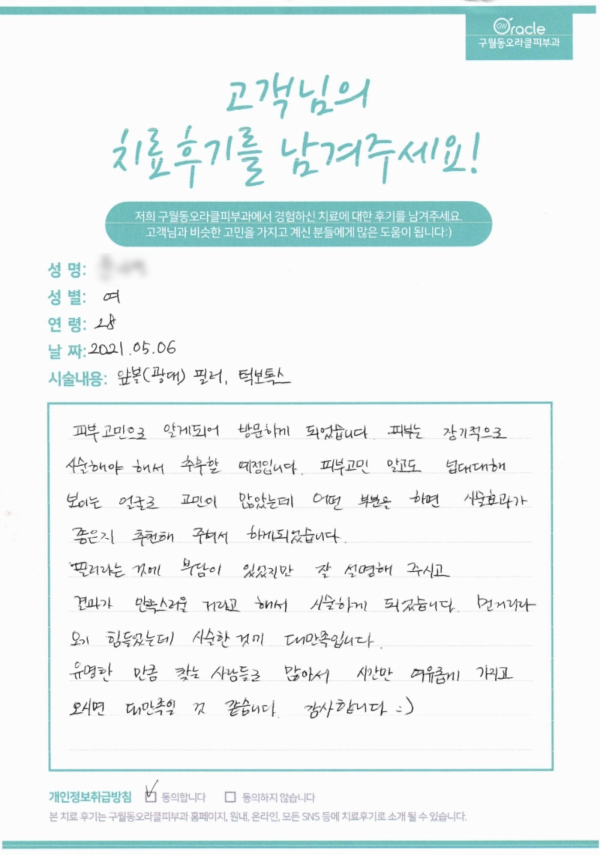 Oracle
구월동오라클피부과
고객님의
치료후기를 남겨주세요!
저희 구월동오라클피부과에서 경험하신 치료에 대한 후기를 남겨주세요.
고객님과 비슷한 고민을 가지고 계신 분들에게 많은 도움이 됩니다:)
성 명:
성 별: 여
연 령: 28
날 짜: 2021.05.06
시술내용: 앞볼(광대) 필러, 턱보톡스
피부고민으로 알게되어 방문하게 되었습니다. 피부는 장기적으로
시술해야 해서 추후할 예정입니다. 피부고민 말고도 넙대대해
보이는 얼굴로 고민이 많았는데 어떤 부분은 하면 시술효과가
좋은지 추천해 주셔서 하게되었습니다.
필러라는 것에 부담이 있었지만 잘 설명해 주시고
결과가 만족스러울 거라고 해서 시술하게 되었습니다. 먼거리라
오기 힘들었는데 시술한 것이 대만족입니다.
유명한 만큼 찾는 사람들도 많아서 시간만 여유롭게 가지고
오시면 대만족일 것 같습니다. 감사합니다 :)
개인정보취급방침 ☑ 동의합니다 ☐ 동의하지 않습니다
본 치료 후기는 구월동오라클피부과 홈페이지, 원내, 온라인, 모든 SNS 등에 치료후기로 소개 될 수 있습니다.